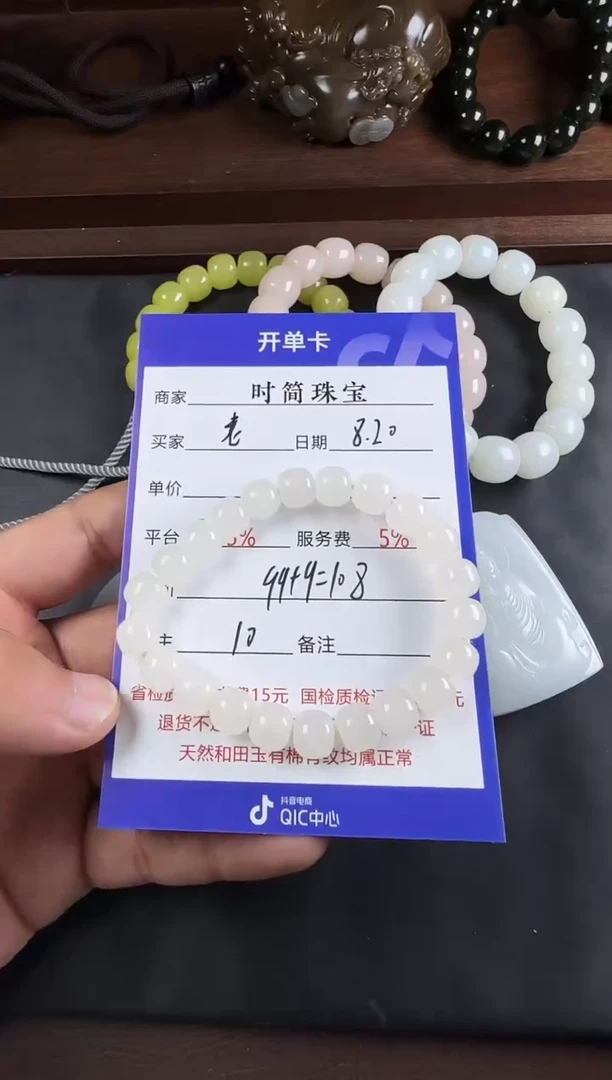 开单卡
商家 时简珠宝
买家 老 日期 8.20
单价
平台 5% 服务费 5%
99+9=108
10 备注
省检质 15元 国检质检 元
退货不 证
天然和田玉有棉有纹均属正常
抖音电商
QIC中心